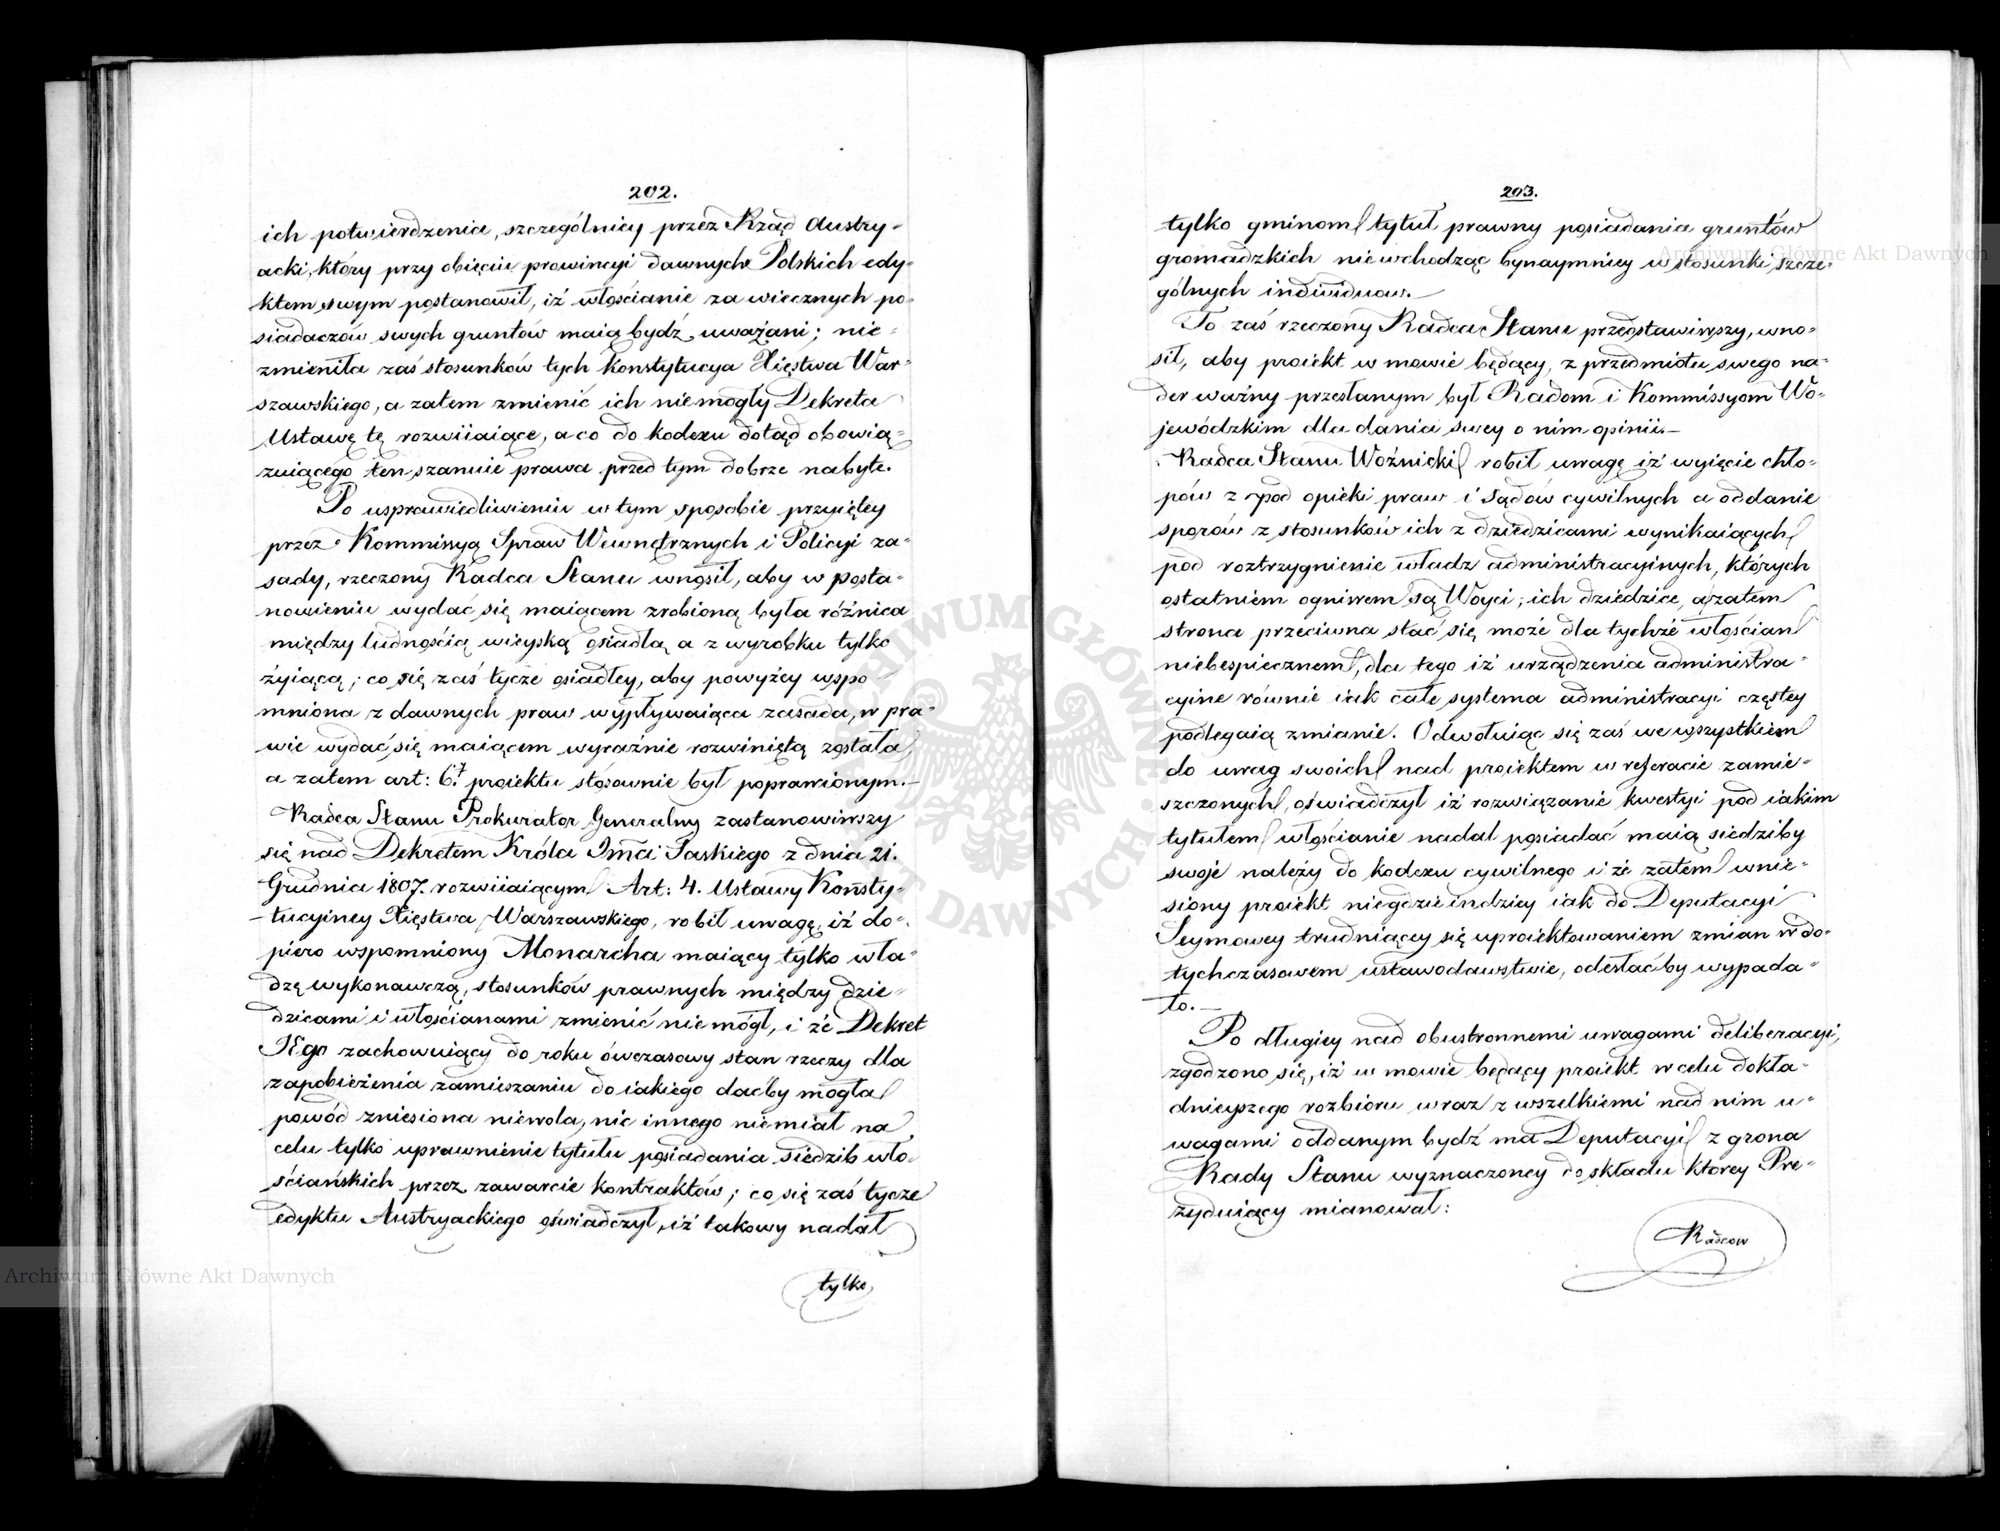 202.
ich potwierdzenie, szczególniey przez Rząd Austry-
acki, który przy obięciu prowincyi dawnych Polskich edy-
ktem swym postanowił, iż włościanie za wiecznych po-
siadaczów swych gruntów maią bydź uważani; nie-
zmieniła zaś stosunków tych Konstytucya Xięstwa War-
szawskiego, a zatem zmienić ich nie mogły Dekreta
Ustawę tę rozwiiaiące, a co do kodexu dotąd obowią-
zuiącego ten szanuie prawa przed tym dobrze nabyte.
Po usprawiedliwieniu w tym sposobie przyiętey
przez Kommissyą Spraw Wewnętrznych i Policyi za-
sady, rzeczony Radca Stanu wnosił, aby w posta-
nowieniu wydać się maiącem zrobioną była różnica
między ludnością wieyską osiadłą a z wyrobku tylko
żyiącą; co się zaś tycze osiadłey, aby powyżey wspo-
mniona z dawnych praw wypływaiąca zasada, w pra-
wie wydać się maiącem wyraźnie rozwiniętą została
a zatem art: 6.ty proiektu stosownie był poprawionym.–
Radca Stanu Prokurator Generalny zastanowiwszy
się nad Dekretem Króla Jmci Saskiego z dnia 21.
Grudnia 1807. rozwiiaiącym Art: 4. Ustawy Konsty-
tucyiney Xięstwa Warszawskiego, robił uwagę, iż do-
piero wspomniony Monarcha maiący tylko wła-
dzę wykonawczą, stosunków prawnych między dzie-
dzicami i włościanami zmienić nie mógł, i że Dekret
JEgo zachowuiący do roku ówczasowy stan rzeczy dla
zapobieżenia zamieszaniu do iakiego daćby mogła
powód zniesiona niewola, nic innego niemiał na
celu tylko uprawnienie tytułu posiadania siedzib wło-
ściańskich przez zawarcie kontraktów; co się zaś tycze
edyktu Austryackiego oświadczył, iż takowy nadał
tylko
203.
tylko gminom tytuł prawny posiadania gruntów
gromadzkich nie wchodząc bynaymniey w stosunki szcze-
gólnych individuow.–
To zaś rzeczony Radca Stanu przedstawiwszy, wno-
sił, aby proiekt w mowie będący, z przedmiotu swego na-
der ważny przesłanym był Radom i Kommissyom Wo-
jewódzkim dla dania swey o nim opinii.–
Radca Stanu Woźnicki robił uwagę iż wyięcie chło-
pów z pod opieki praw i sądów cywilnych a oddanie
sporów z stosunków ich z dziedzicami wynikaiących
pod roztrzygnienie władz administracyinych, których
ostatniem ogniwem są Woyci; ich dziedzice, a zatem
strona przeciwna stać się może dla tychże włościan
niebespiecznem, dla tego iż urządzenia administra-
cyine równie iak całe systema administracyi częstey
podlegaią zmianie. Odwołuiąc się zaś we wszystkiem
do uwag swoich nad proiektem w referacie zamie-
szczonych, oświadczył iż rozwiązanie kwestyi pod iakim
tytułem włościanie nadal posiadać maią siedziby
swoje należy do kodexu cywilnego i że zatem wnie-
siony proiekt niegdzieindziey iak do Deputacyi
Seymowey trudniącey się uproiektowaniem zmian w do-
tychczasowem ustawodawstwie, odesłaćby wypada-
ło.–
Po długiey nad obustronnemi uwagami deliberacyi,
zgodzono się, iż w mowie będący proiekt w celu dokła-
dnieyszego rozbioru wraz z wszelkiemi nad nim u-
wagami oddanym bydź ma Deputacyi z grona
Rady Stanu wyznaczoney do składu którey Pre-
zyduiący mianował:
Radcow
Archiwum Główne Akt Dawnych
Archiwum Główne Akt Dawnych
ARCHIWUM GŁÓWNE AKT DAWNYCH